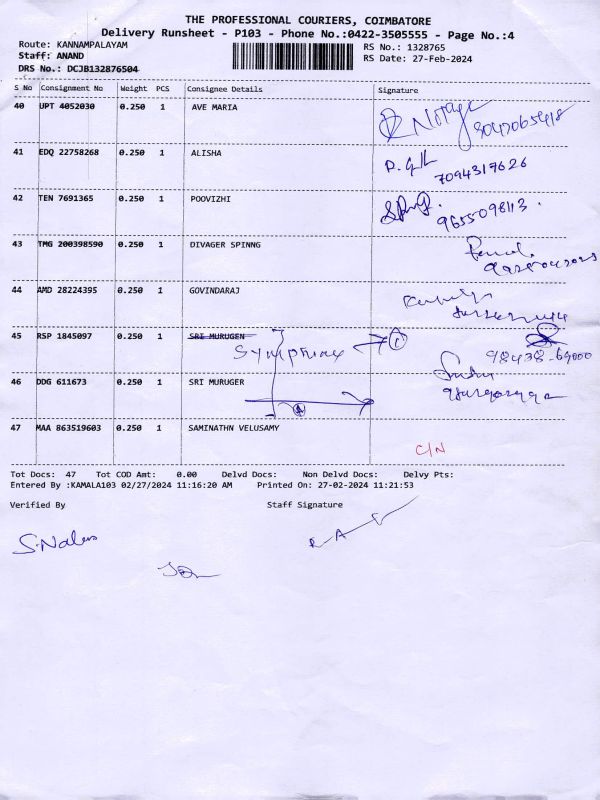 THE PROFESSIONAL COURIERS, COIMBATORE
Delivery Runsheet - P103 - Phone No.:0422-3505555 - Page No.:4
Route: KANNAMPALAYAM RS No.: 1328765
Staff: ANAND RS Date: 27-Feb-2024
DRS No.: DCJB132876504
S No Consignment No Weight PCS Consignee Details Signature
40 UPT 4052030 0.250 1 AVE MARIA
41 EDQ 22758268 0.250 1 ALISHA
7094317626
42 TEN 7691365 0.250 1 POOVIZHI
9655098113.
43 TMG 200398590 0.250 1 DIVAGER SPINNG
44 AMD 28224395 0.250 1 GOVINDARAJ
45 RSP 1845097 0.250 1 SRI MURUGEN
98438-69000
46 DDG 611673 0.250 1 SRI MURUGER
47 MAA 863519603 0.250 1 SAMINATHN VELUSAMY
C/N
Tot Docs: 47 Tot COD Amt: 0.00 Delvd Docs: Non Delvd Docs: Delvy Pts:
Entered By :KAMALA103 02/27/2024 11:16:20 AM Printed On: 27-02-2024 11:21:53
Verified By Staff Signature